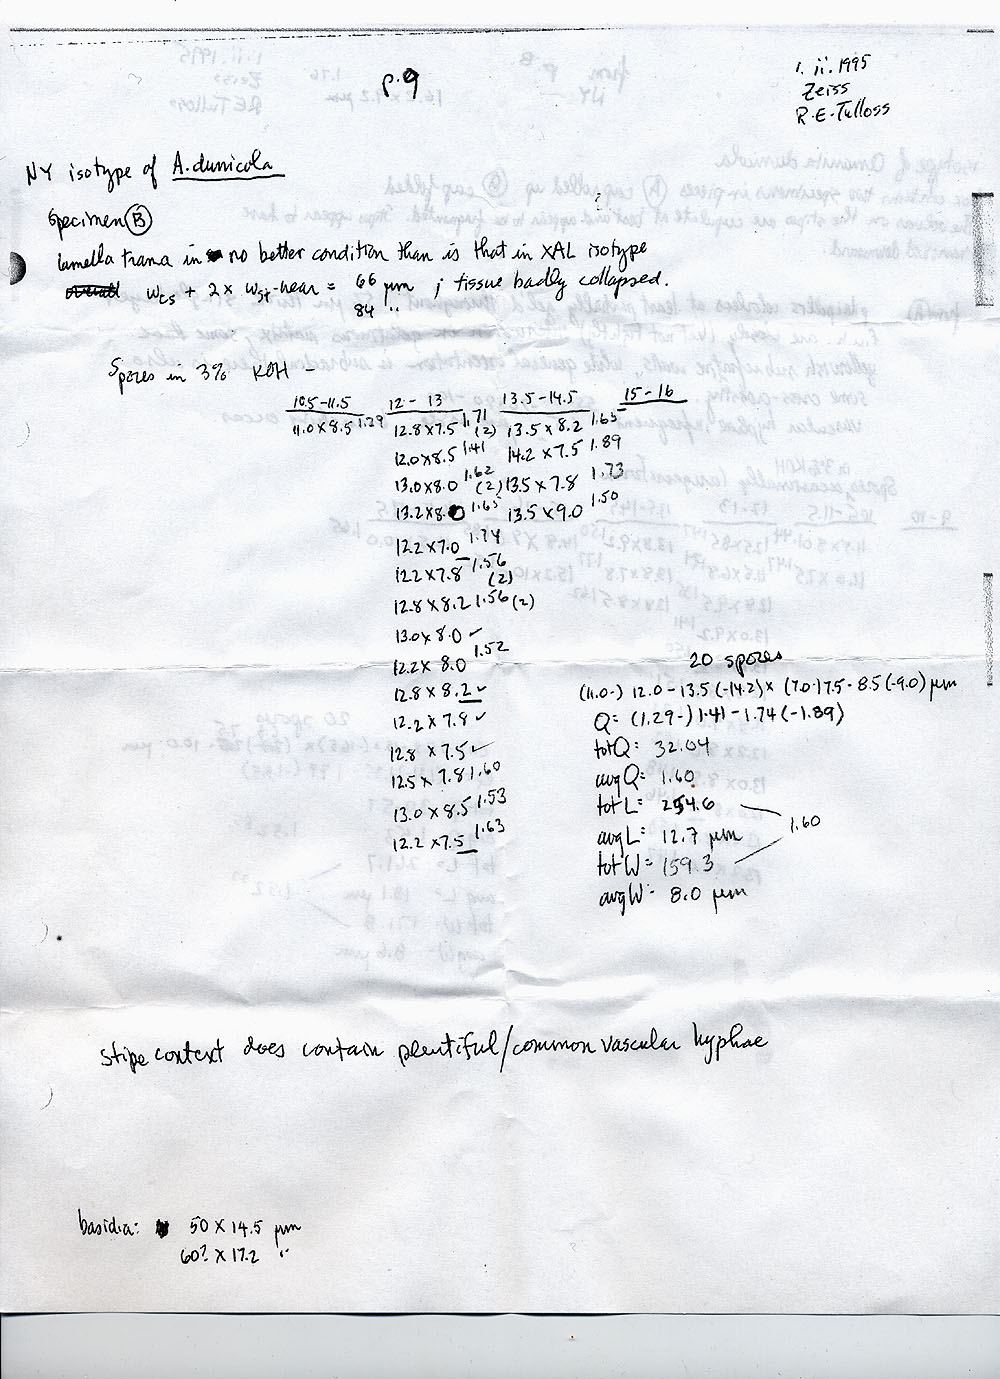 p.9
1. ii. 1995
Zeiss
R.E. Tulloss
NY isotype of A. dunicola
Specimen (B)
lamella trama in no better condition than is that in XAL isotype
wcs + 2 x wst-near = 66 µm ; tissue badly collapsed.
84 "
Spores in 3% KOH -
10.5-11.5 12-13 13.5-14.5 15-16
11.0 x 8.5 1.29 12.8 x 7.5 1.71 (2) 13.5 x 8.2 1.65
12.0 x 8.5 1.41 14.2 x 7.5 1.89
13.0 x 8.0 1.62 (2) 13.5 x 7.8 1.73
13.2 x 8.0 1.65 13.5 x 9.0 1.50
12.2 x 7.0 1.74
12.2 x 7.8 1.56 (2)
12.8 x 8.2 1.56 (2)
13.0 x 8.0 ✓
12.2 x 8.0 1.52
12.8 x 8.2 ✓
12.2 x 7.8 ✓
12.8 x 7.5 ✓
12.5 x 7.8 1.60
13.0 x 8.5 1.53
12.2 x 7.5 1.63
20 spores
(11.0-) 12.0 - 13.5 (-14.2) x (7.0-) 7.5 - 8.5 (-9.0) µm
Q = (1.29-) 1.41 - 1.74 (-1.89)
totQ = 32.04
avgQ = 1.60
totL = 254.6
1.60
avgL = 12.7 µm
totW = 159.3
avgW = 8.0 µm
stipe context does contain plentiful/common vascular hyphae
basidia: 50 x 14.5 µm
60? x 17.2 "